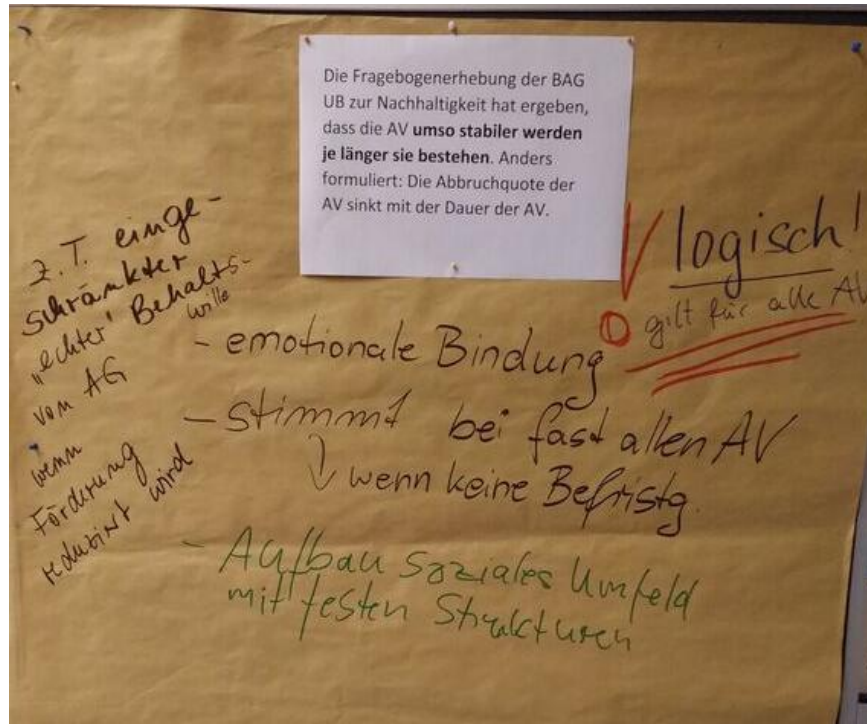 Die Fragebogenerhebung der BAG
UB zur Nachhaltigkeit hat ergeben,
dass die AV umso stabiler werden
je länger sie bestehen. Anders
formuliert: Die Abbruchquote der
AV sinkt mit der Dauer der AV.
z. T. einge-
schränkter
„echter" Behalts-
wille
von AG
wenn
Förderung
reduziert wird
logisch!
gilt für alle AV
- emotionale Bindung
- stimmt bei fast allen AV
wenn keine Befristg.
- Aufbau soziales Umfeld
mit festen Strukturen